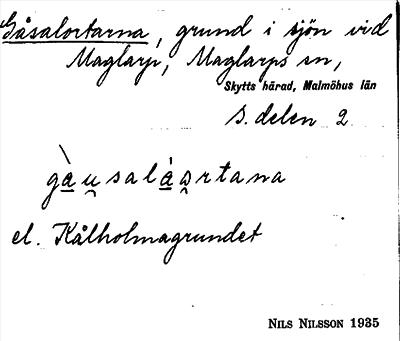 Gåsalortarna, grund i sjön vid
Maglarp, Maglarps sn,
Skytts härad, Malmöhus län
S. delen 2
gàu̯salàɷ̯rtana
el. Kålholmagrundet
NILS NILSSON 1935